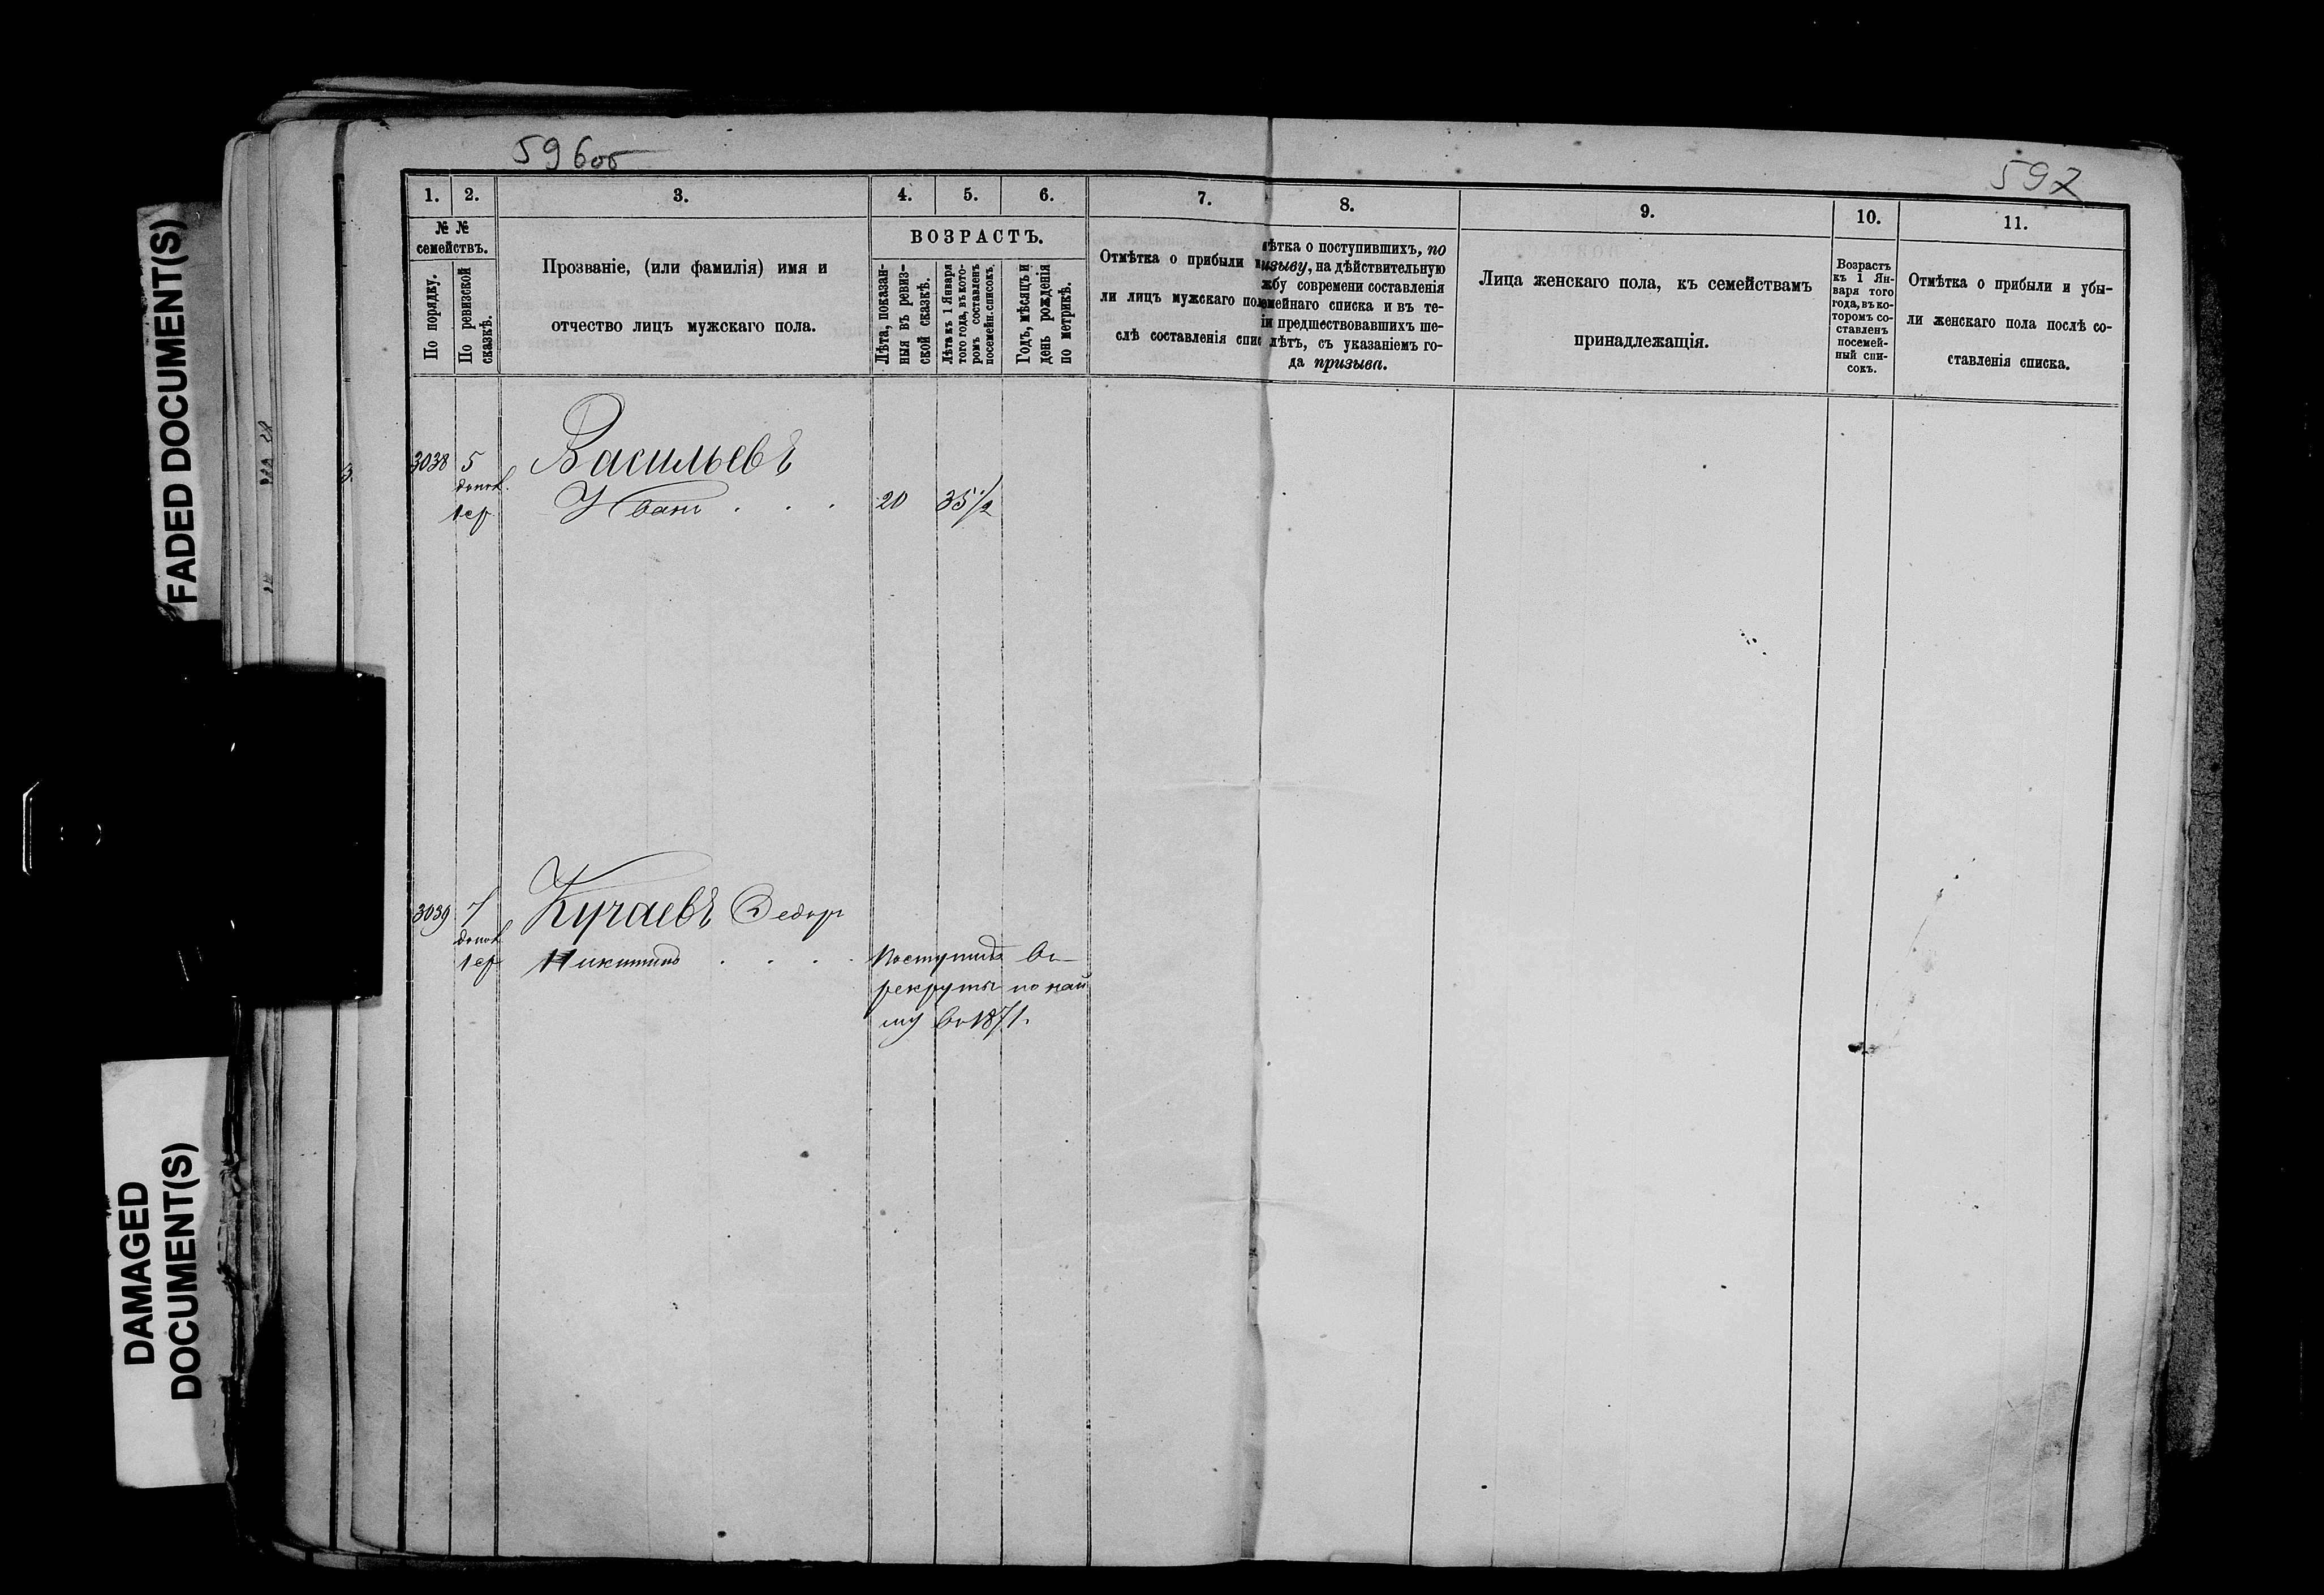 FADED DOCUMENT(S)
DAMAGED
DOCUMENT(S)
596об
597
1.
2.
3.
4.
5.
6.
7.
8.
9.
10.
11.
№ №
семействъ.
По порядку.
По ревизской
сказкѣ.
Прозваніе, (или фамилія) имя и
отчество лицъ мужскаго пола.
ВОЗРАСТЪ.
Лѣта, показан-
ныя въ ревиз-
ской сказкѣ.
Лѣта къ 1 Января
того года, въ кото-
ромъ составленъ
посемейн. списокъ.
Годъ, мѣсяцъ и
день рожденія
по метрикѣ.
Отмѣтка о прибыли и
ли лицъ мужскаго пол
слѣ составленія спис
ѣтка о поступившихъ, по
изыву, на дѣйствительную
жбу современи составленія
емейнаго списка и въ те-
іи предшествовавшихъ ше-
лѣтъ, съ указаніемъ го-
да призыва.
Лица женскаго пола, къ семействамъ
принадлежащія.
Возрастъ
къ 1 Ян-
варя того
года, въ ко-
торомъ со-
ставленъ
посемей-
ный спи-
сокъ.
Отмѣтка о прибыли и убы-
ли женскаго пола послѣ со-
ставленія списка.
3038 5 Васильевъ
допол.
Иванъ . . . 20 35 1/2
3039 7 Кучаевъ Ѳедоръ
допол
Никитинъ . . . Поступилъ въ
рекруты по най
му въ 1871.